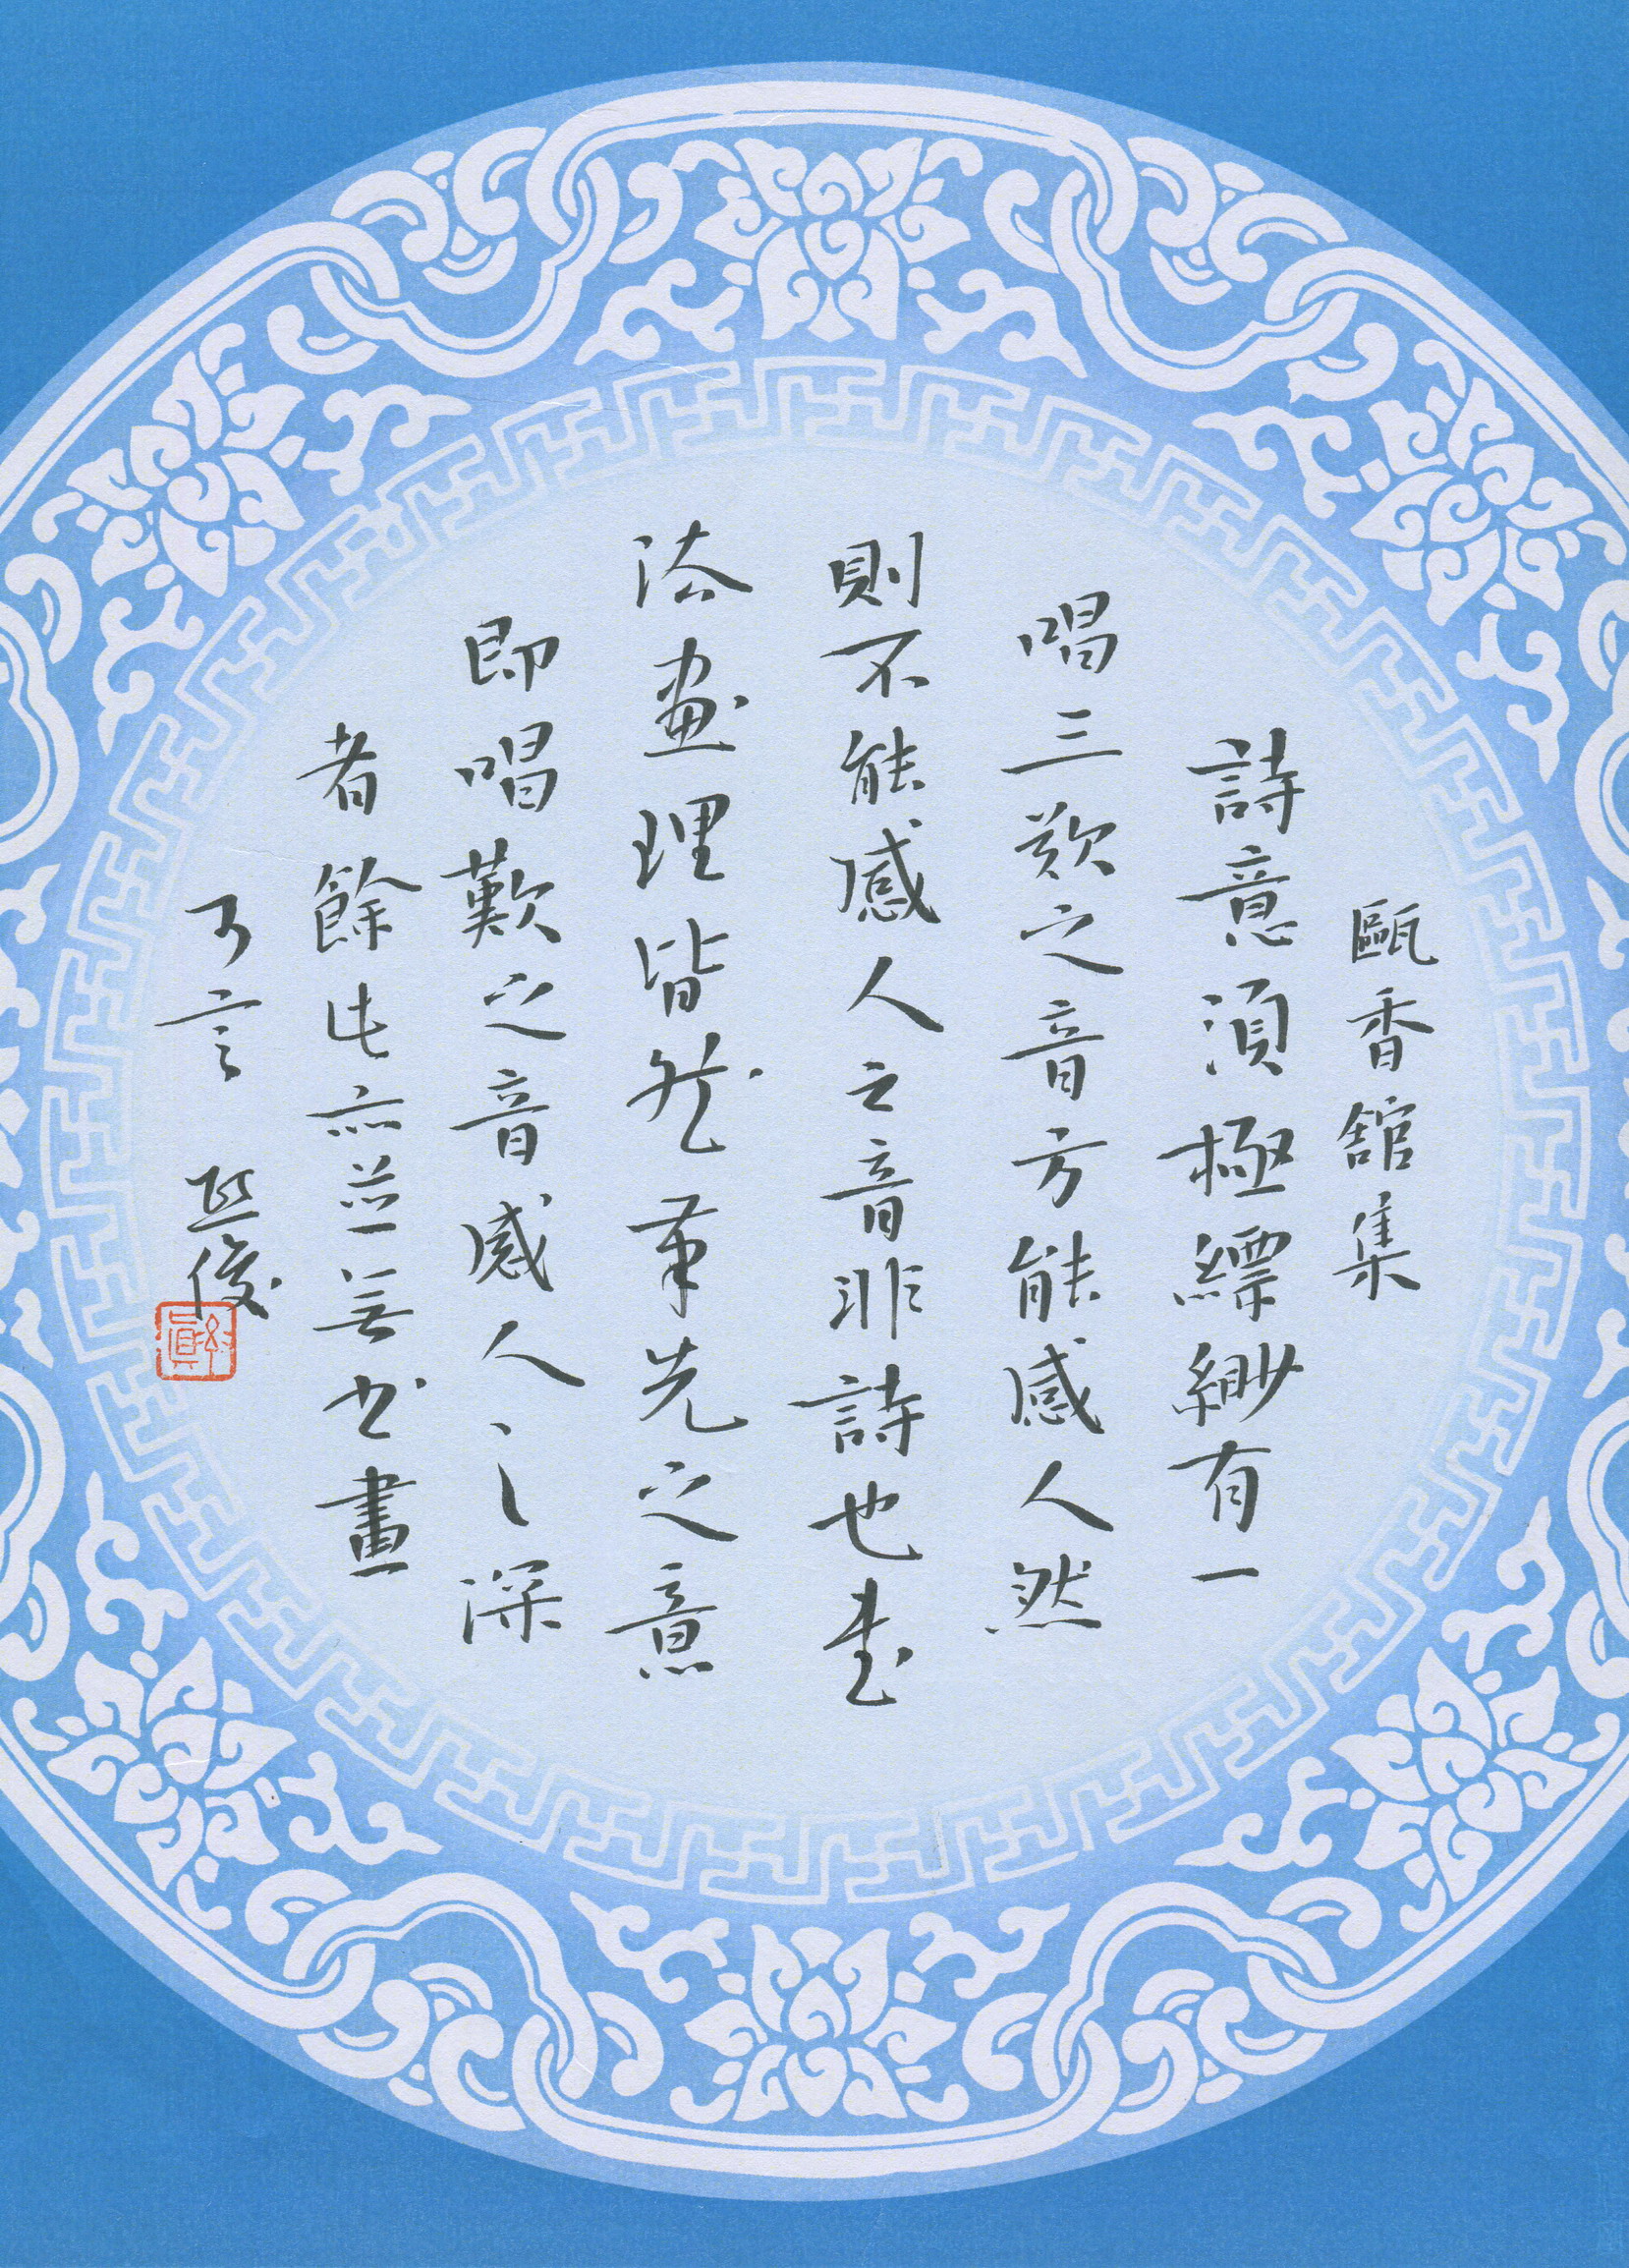 甌香舘集
詩意須極縹緲有一
唱三歎之音方能感人然
則不能感人之音非詩也書
法畫理皆然筆先之意
即唱歎之音感人之深
者餘此亦並無書畫
可言 俊